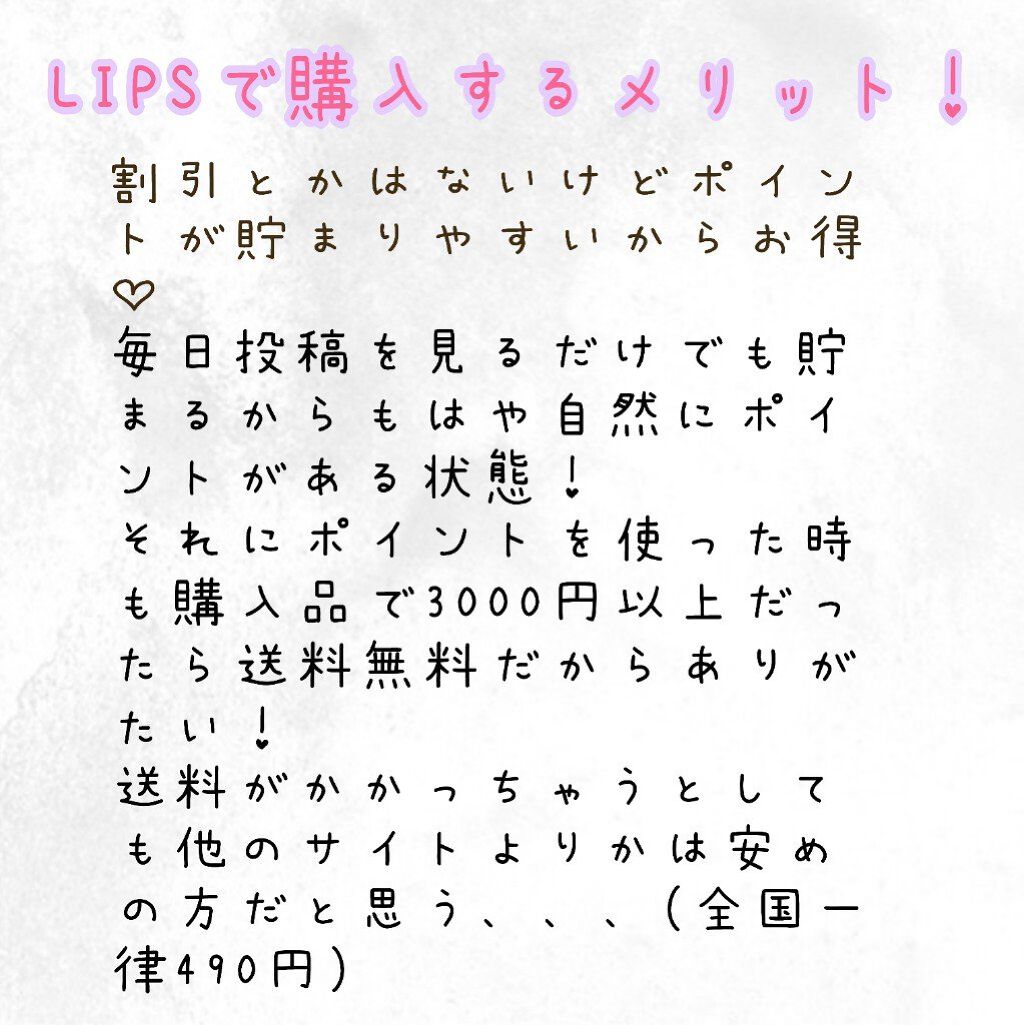 LIPSで購入するメリット！
割引とかはないけどポイン
トが貯まりやすいからお得
♡
毎日投稿を見るだけでも貯
まるからもはや自然にポイ
ントがある状態！
それにポイントを使った時
も購入品で3000円以上だっ
たら送料無料だからありが
たい！
送料がかかっちゃうとして
も他のサイトよりかは安め
の方だと思う、、、(全国一
律490円)